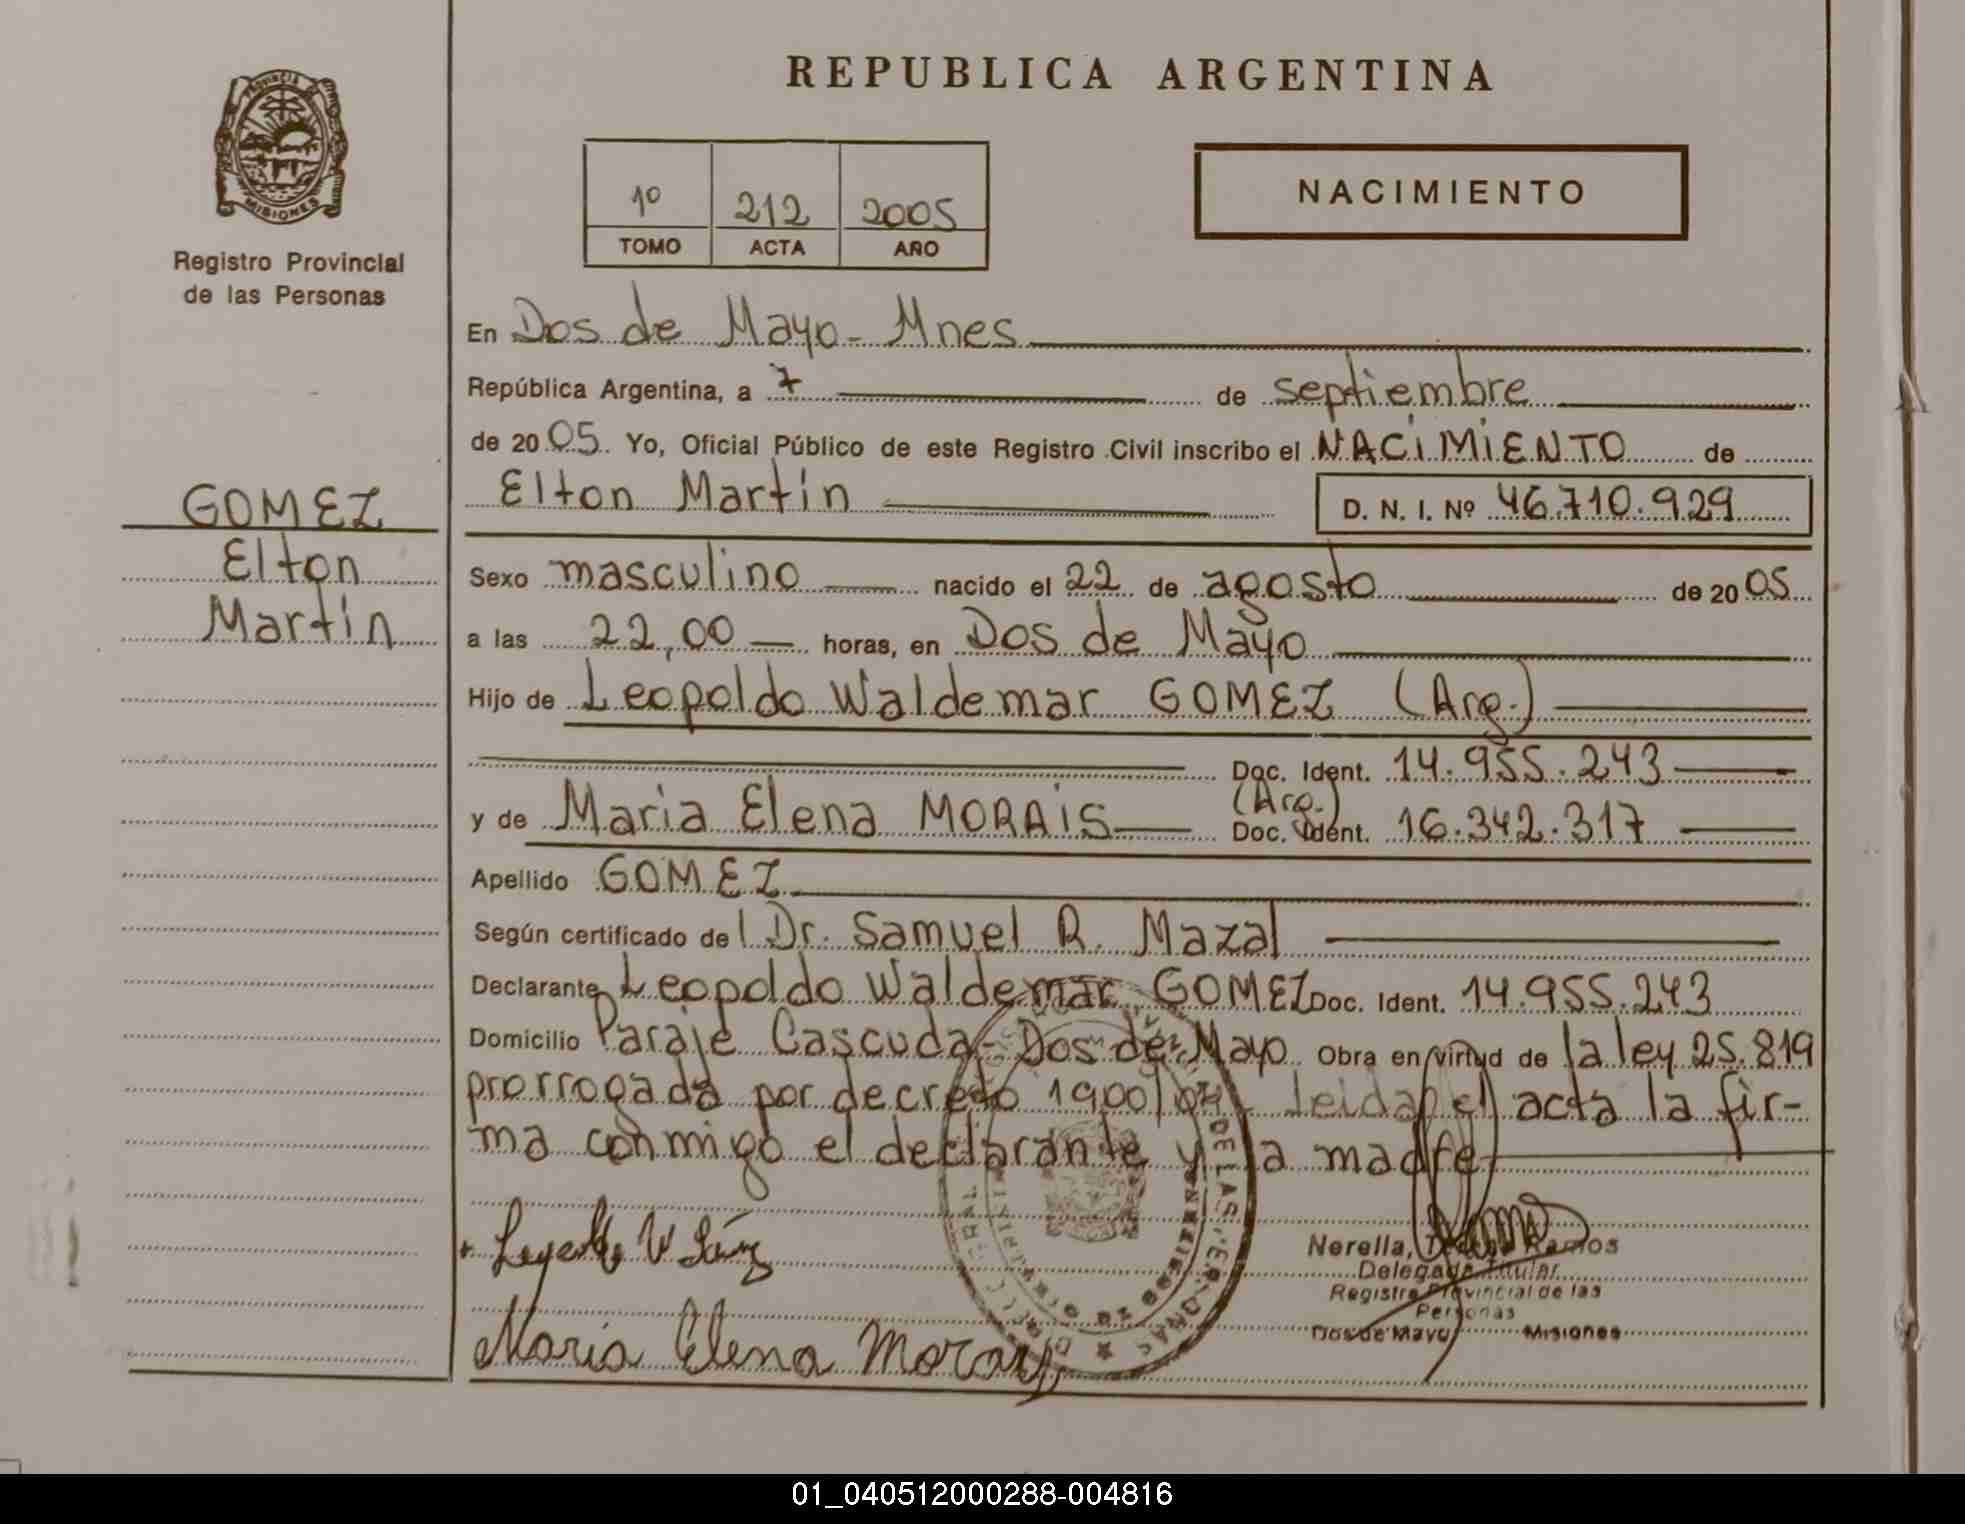 REPUBLICA ARGENTINA
PROVINCIA DE
MISIONES
Registro Provincial
de las Personas
1º 212 2005
TOMO ACTA AÑO
NACIMIENTO
En Dos de Mayo - Mnes
República Argentina, a 7 de septiembre
de 2005. Yo, Oficial Público de este Registro Civil inscribo el NACIMIENTO de
Elton Martín D. N. I. Nº 46.710.929
GOMEZ
Elton
Martín
Sexo masculino nacido el 22 de agosto de 2005
a las 22,00 horas, en Dos de Mayo
Hijo de Leopoldo Waldemar GOMEZ (Arg.)
Doc. Ident. 14.955.243
(Arg.)
y de Maria Elena MORAIS Doc. Ident. 16.342.317
Apellido GOMEZ
Según certificado del Dr. Samuel R. Mazal
Declarante Leopoldo Waldemar GOMEZ Doc. Ident. 14.955.243
Domicilio Paraje Cascuda - Dos de Mayo Obra en virtud de la ley 25.819
prorrogada por decreto 1900/04 leida el acta la fir-
ma conmigo el declarante y la madre
Maria Elena Morais
Nerella, Ramos
Delegada Titular
Registro Provincial de las
Personas
Dos de Mayo Misiones
DE LAS
01_040512000288-004816